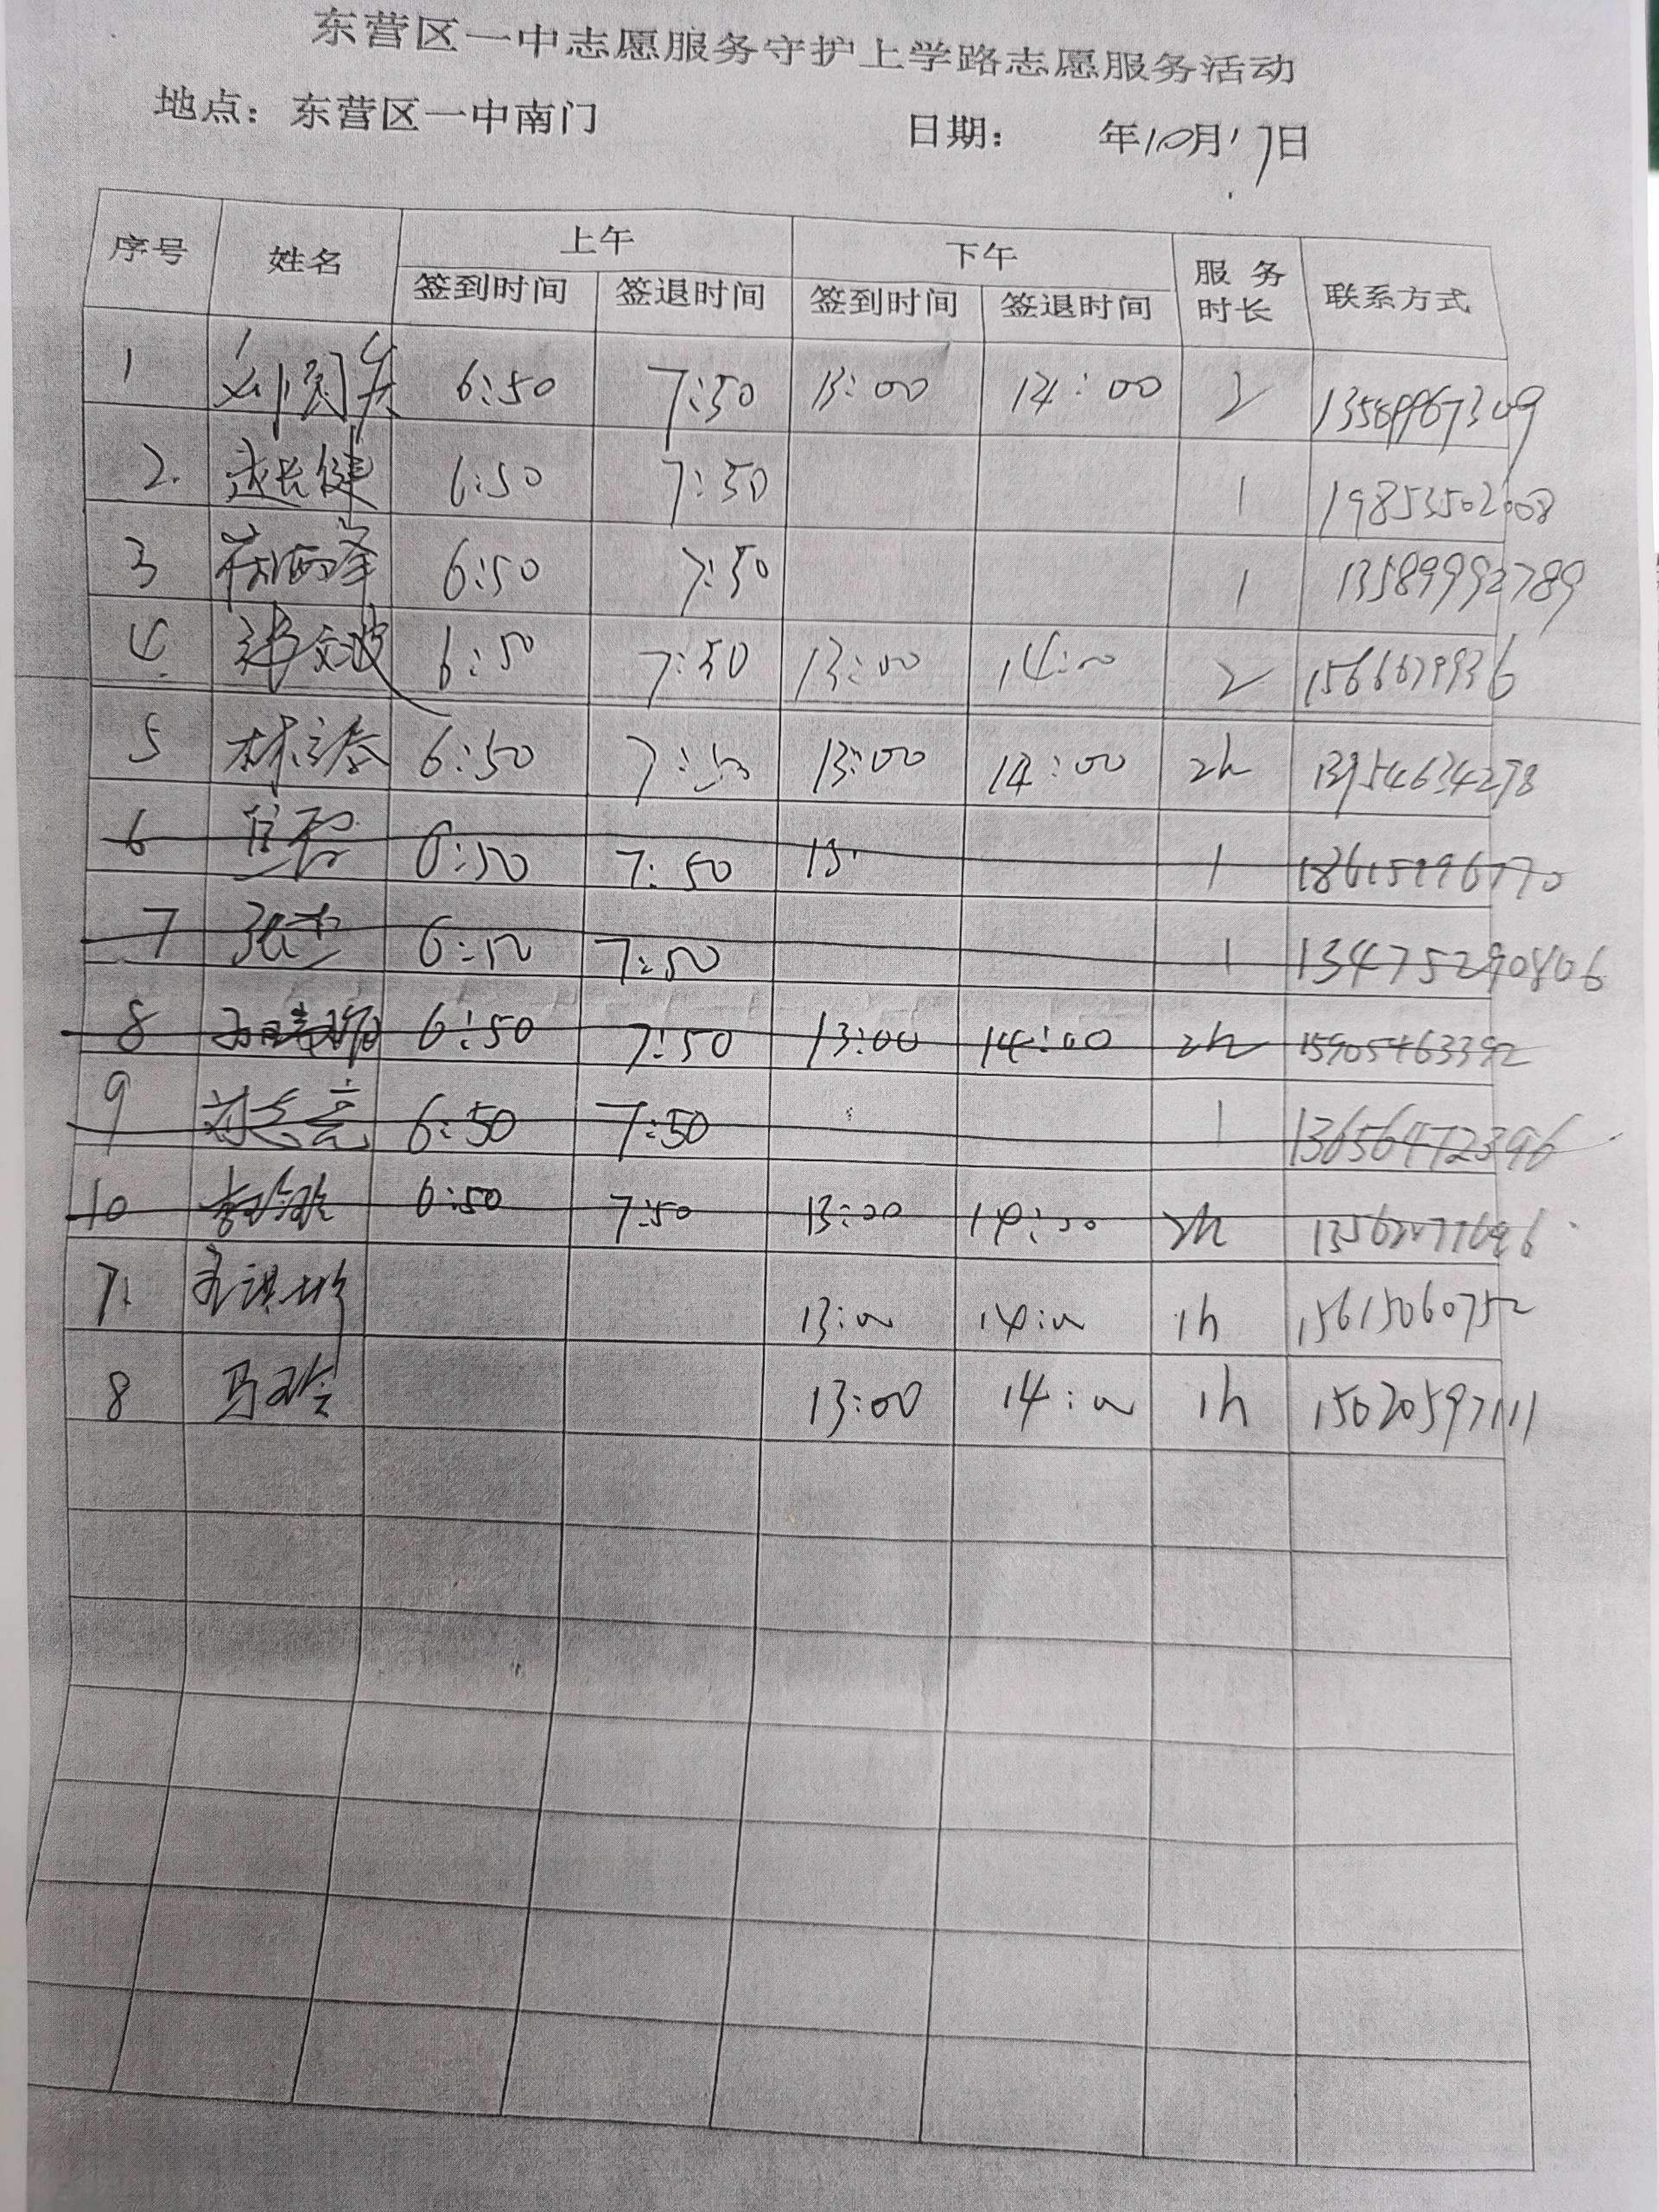 东营区一中志愿服务守护上学路志愿服务活动
地点：东营区一中南门 日期： 年10月17日
序号 姓名 上午 下午 服务时长 联系方式
签到时间 签退时间 签到时间 签退时间
1 6:50 7:50 13:00 14:00 2
2. 6:50 7:50 1 19853502008
3 6:50 7:50 1 13589992789
4. 6:50 7:50 13:00 14:00 2
5 6:50 7:50 13:00 14:00 2h 13954634278
6 6:50 7:50 13: 1
7 张杰 6:50 7:50 1 13475290806
8 6:50 7:50 13:00 14:00 2h 15905463392
9 刘志亮 6:50 7:50 1 13656472396
10 李玲玲 6:50 7:50 13:00 14:00 2h
7. 13:00 14:00 1h 15615060752
8 马玲 13:00 14:00 1h 15020597111